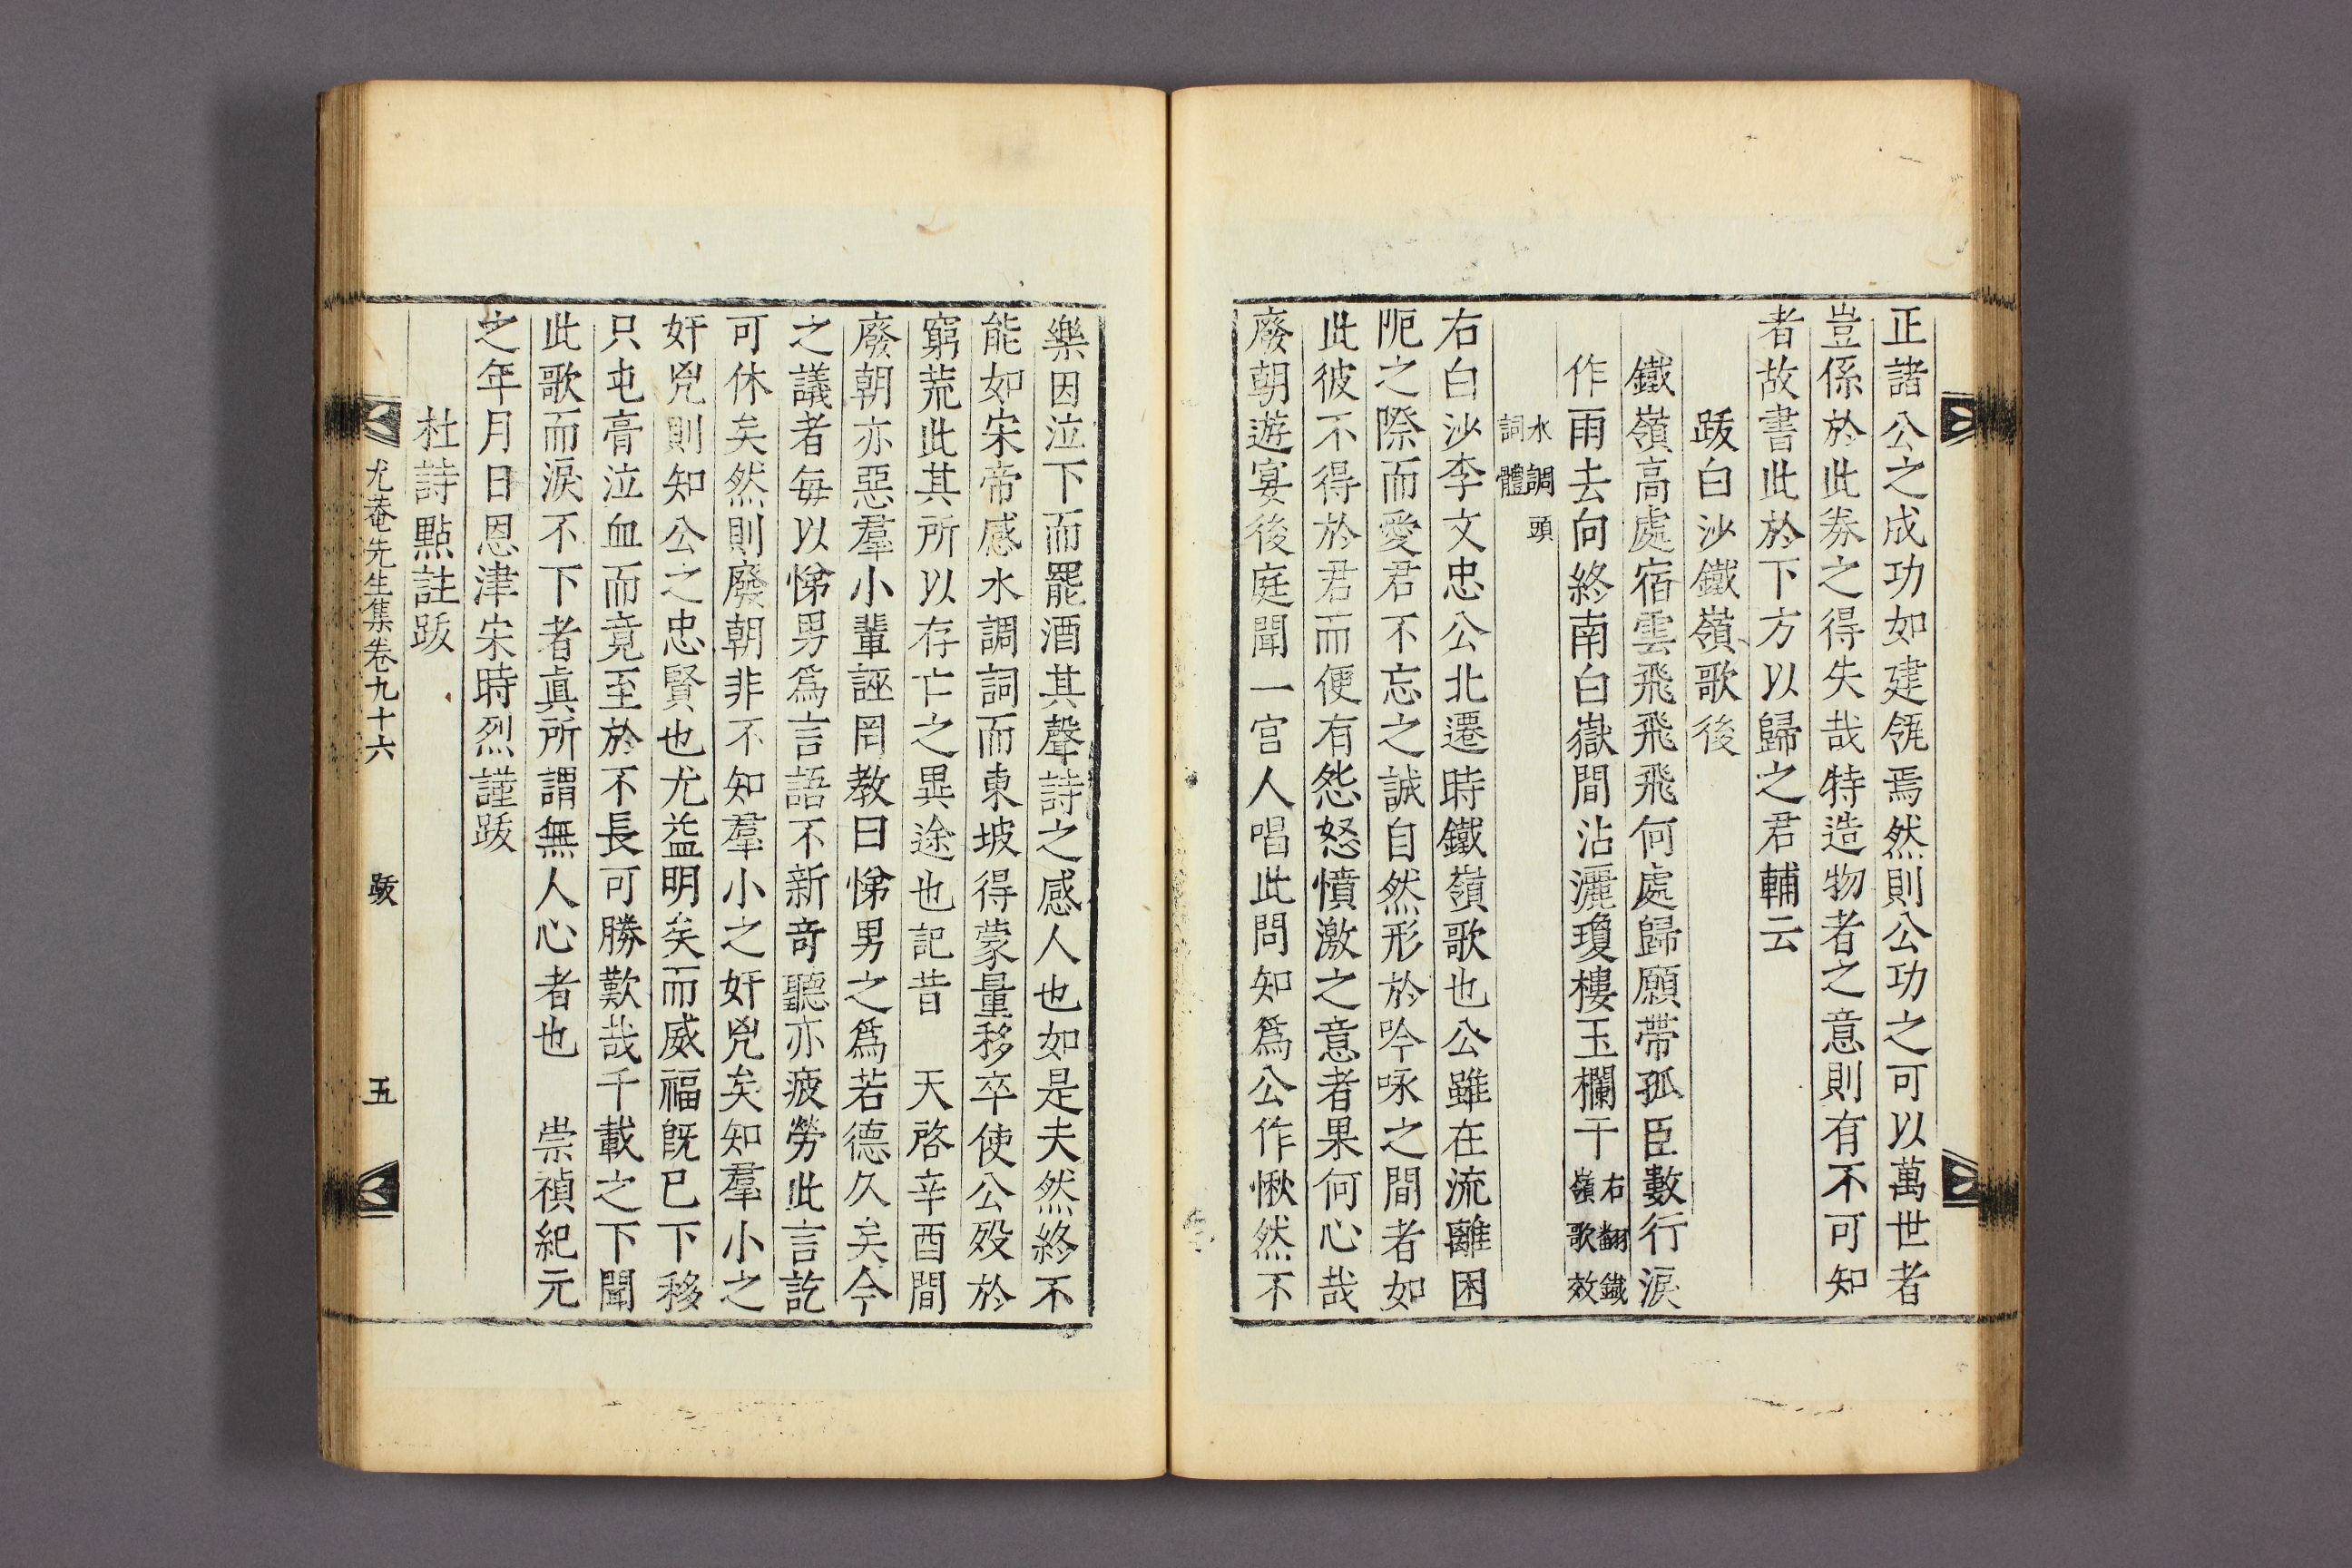 正諸公之成功如建瓴焉然則公功之可以萬世者
豈係於此劵之得失哉特造物者之意則有不可知
者故書此於下方以歸之君輔云
跋白沙鐵嶺歌後
鐵嶺高處宿雲飛飛飛何處歸願帶孤臣數行淚
作雨去向終南白嶽間沾灑瓊樓玉欄干右翻鐵嶺歌效
水調頭詞體
右白沙李文忠公北遷時鐵嶺歌也公雖在流離困
阨之際而愛君不忘之誠自然形於吟咏之間者如
此彼不得於君而便有怨怒憤激之意者果何心哉
廢朝遊宴後庭聞一宮人唱此問知爲公作愀然不
樂因泣下而罷酒其聲詩之感人也如是夫然終不
能如宋帝感水調詞而東坡得蒙量移卒使公歿於
窮荒此其所以存亡之異途也記昔 天啓辛酉間
廢朝亦惡羣小輩誣罔教曰悌男之爲若德久矣今
之議者每以悌男爲言語不新奇聽亦疲勞此言訖
可休矣然則廢朝非不知羣小之奸兇矣知羣小之
奸兇則知公之忠賢也尤益明矣而威福旣已下移
只屯膏泣血而竟至於不長可勝歎哉千載之下聞
此歌而淚不下者眞所謂無人心者也 崇禎紀元
之年月日恩津宋時烈謹跋
杜詩點註跋
尤菴先生集卷九十六 跋 五